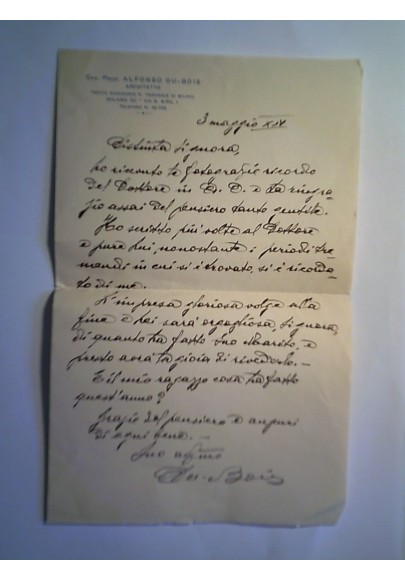 Cav. Prof. ALFONSO DU-BOIS
ARCHITETTO
PERITO GIUDIZIARIO R. TRIBUNALE DI MILANO
3 maggio XIV
Distinta Signora,
ho ricevuto le fotografie ricordo
del Dottore in A. O. e La ringra-
zio assai del pensiero tanto gentile.
Ho scritto più volte al Dottore
e pure lui, nonostante i periodi tre-
mendi in cui si è trovato, si è ricorda-
to di me.
L'impresa gloriosa volge alla
fine e Lei sarà orgogliosa, Signora,
di quanto ha fatto Suo Marito, e
presto avrà la gioia di rivederlo. -
E il mio ragazzo cosa ha fatto
quest'anno?
Grazie del pensiero e auguri
di ogni bene. -
Suo aff.mo
Du-Bois